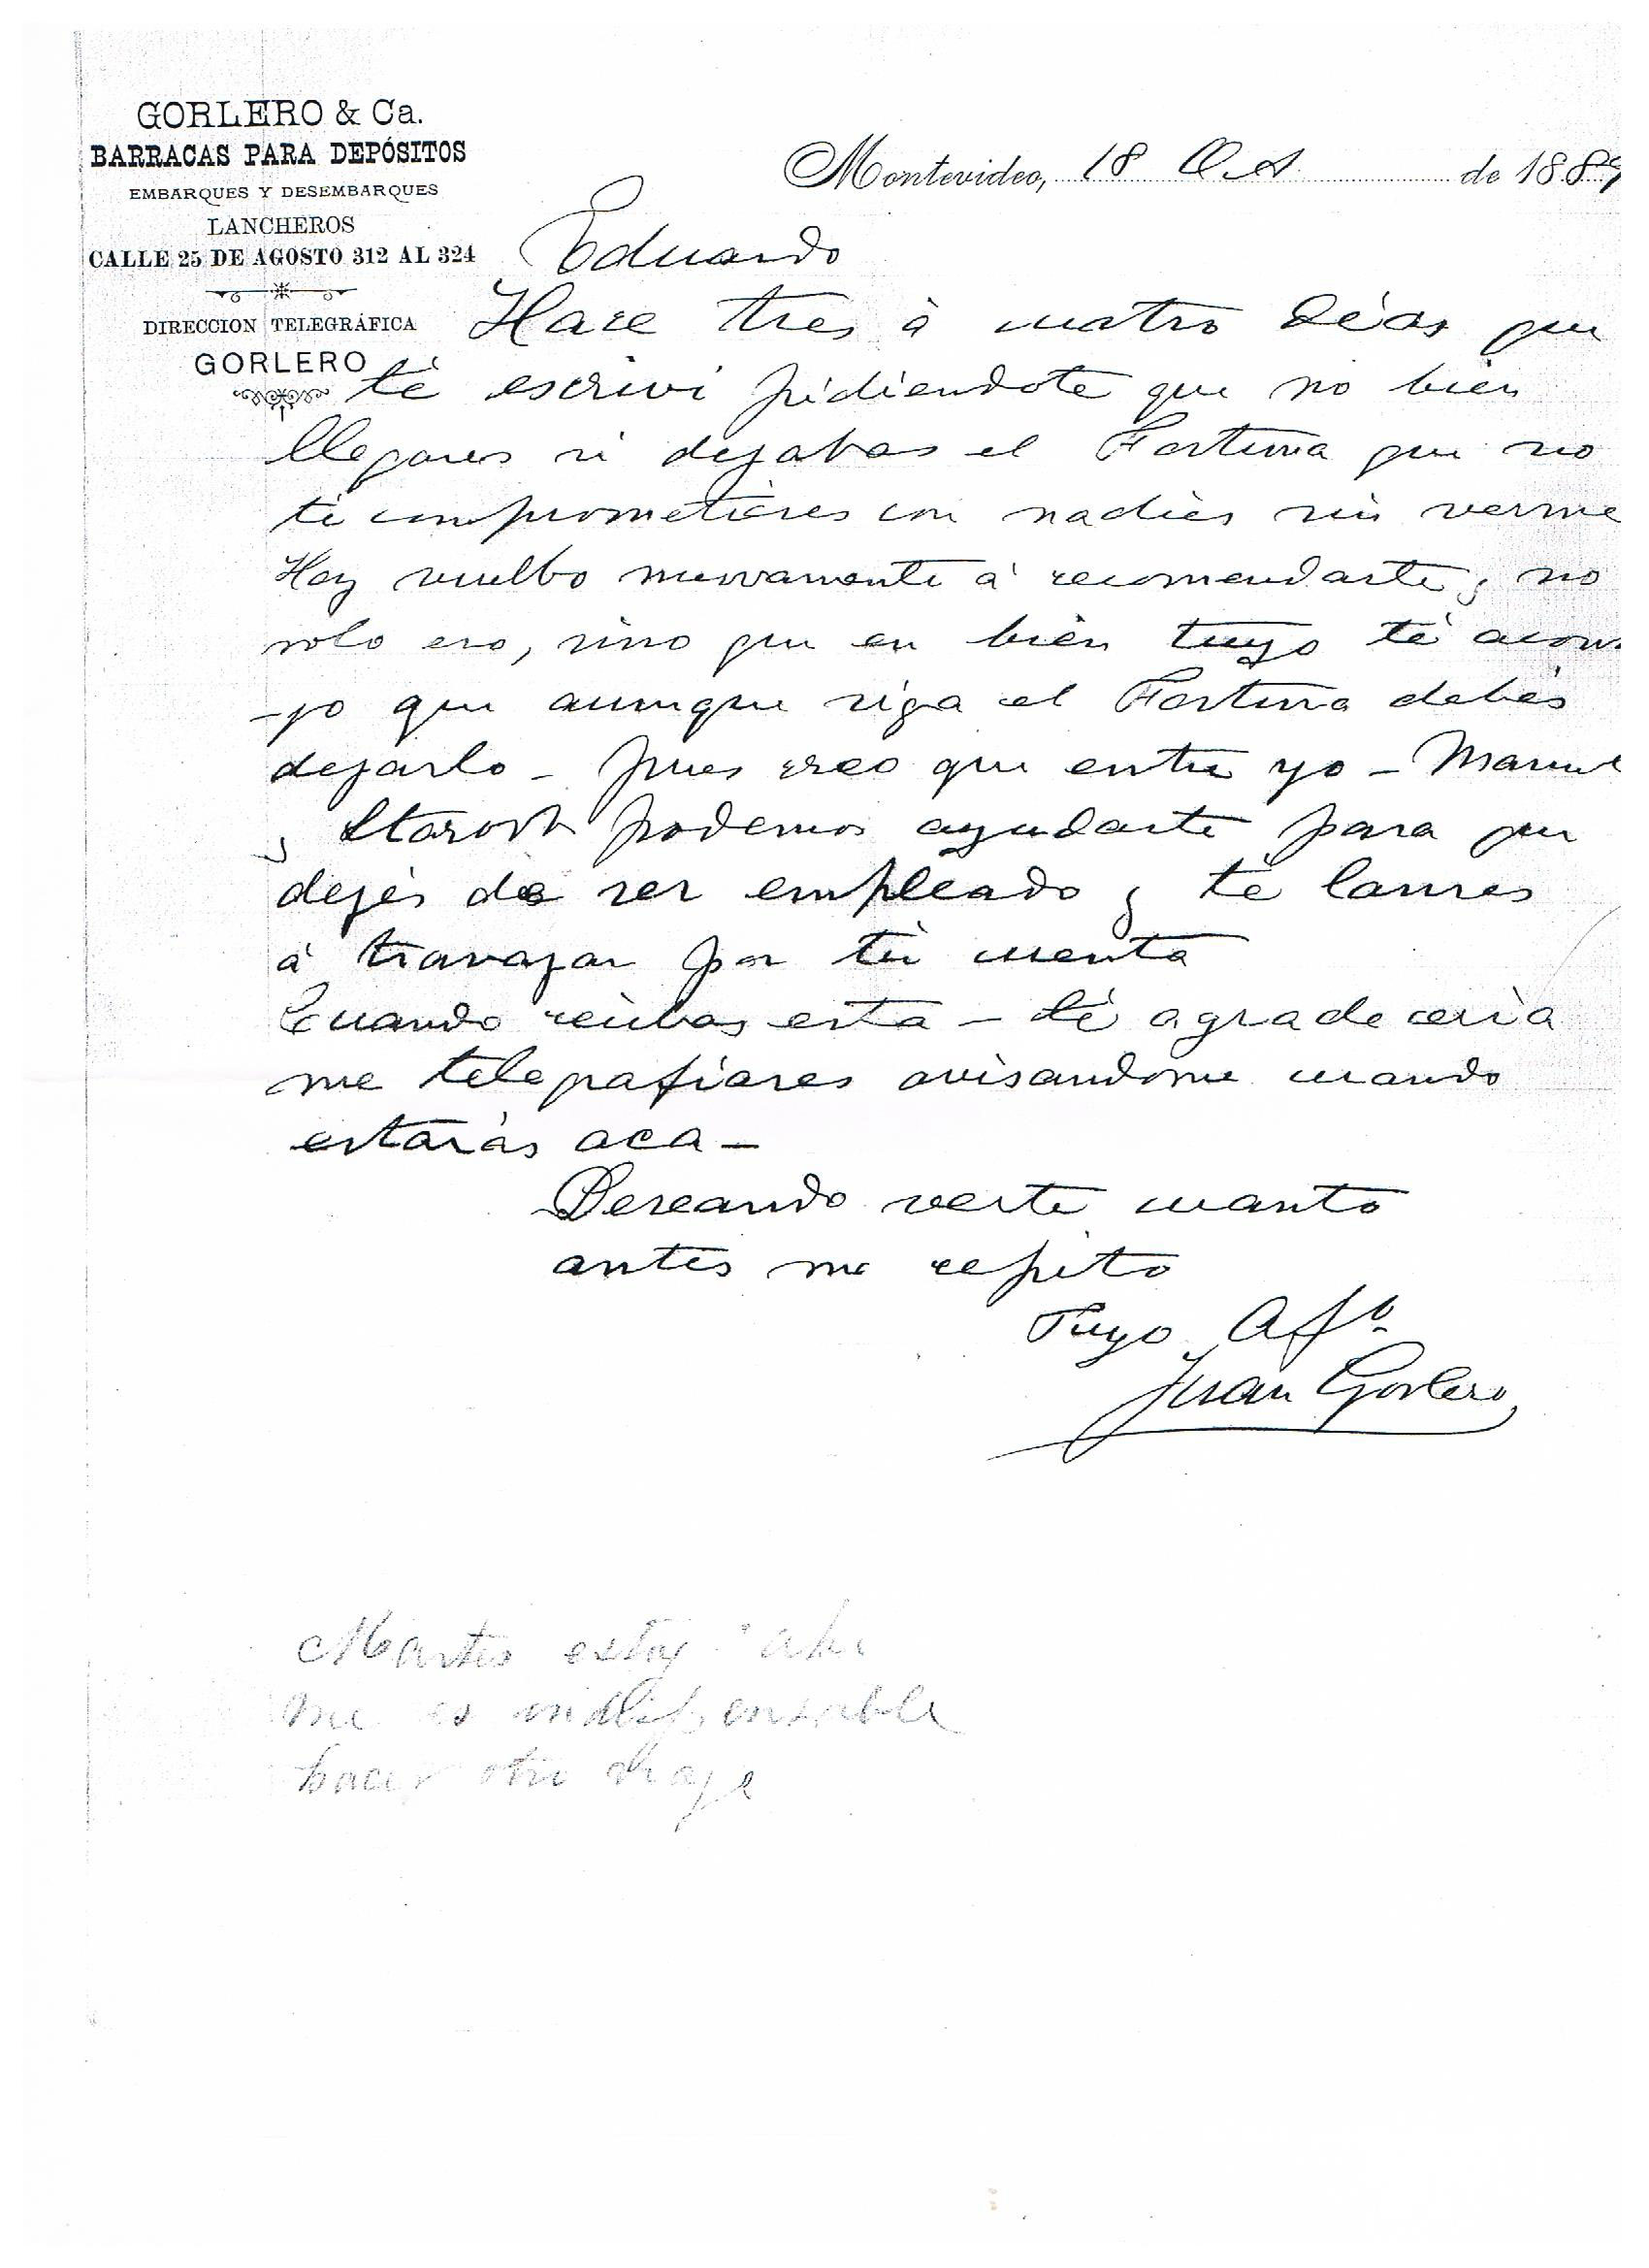 GORLERO & Ca.
BARRACAS PARA DEPÓSITOS
EMBARQUES Y DESEMBARQUES
LANCHEROS
CALLE 25 DE AGOSTO 312 AL 324
DIRECCION TELEGRÁFICA
GORLERO
Montevideo, 18 Oct de 1889
Eduardo
Hace tres á cuatro dias que
té escrivi pidiendote que no bien
llegares si dejabas el Fortuna que no
te comprometieres con nadies sin verme
Hoy vuelbo nuevamente á recomendarte, no
solo eso, sino que en bien tuyo té acons
-jo que aunque siga el Fortuna debés
dejarlo - pues creo que entre yo - Manuel
y podemos ayudarte para que
dejés de ser empleado y té lances
á travajar por tú cuenta
Cuando recibas esta - té agradeceria
me telegrafiares avisandome cuando
estarás aca -
Deseando verte cuanto
antes me repito
Tuyo Afo.
Juan Gorlero
Martes estoy ahi
me es indispensable
hacer otro viaje